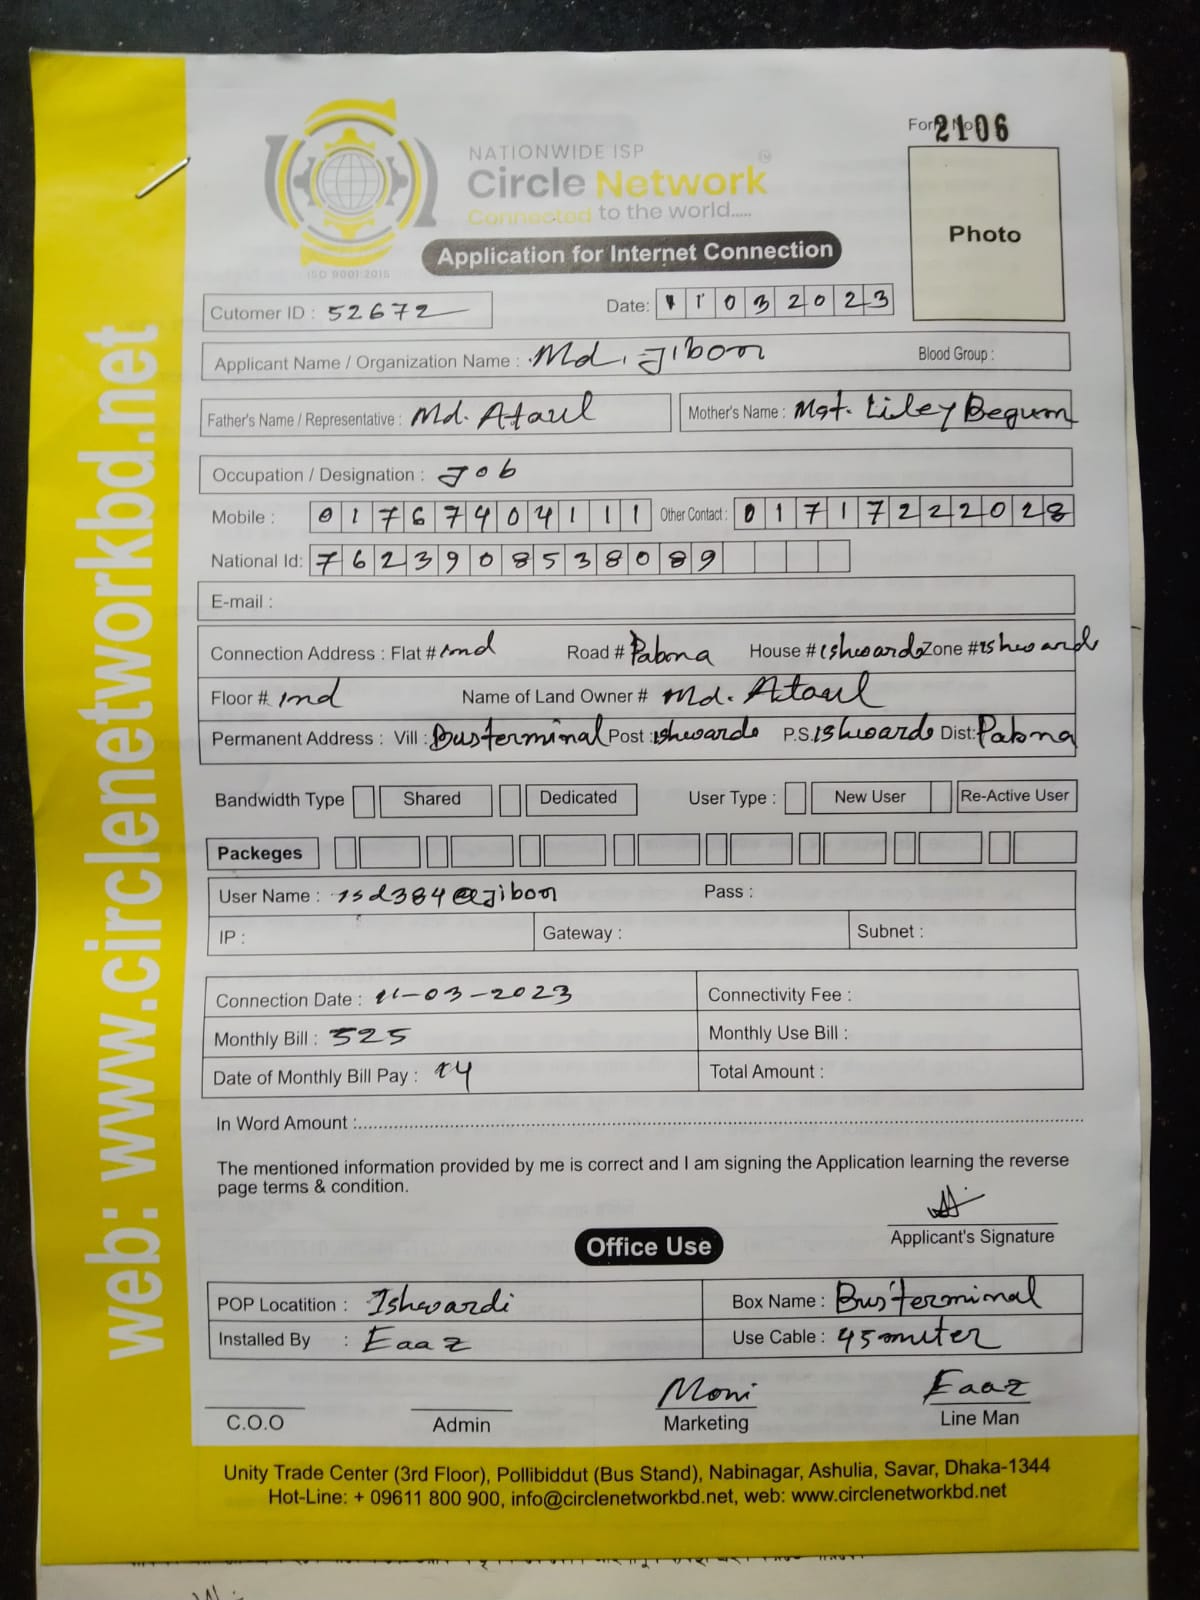 Form No 2106
NATIONWIDE ISP
Circle Network
Connected to the world.....
ISO 9001:2015
Application for Internet Connection
Photo
Cutomer ID : 52672
Date: 11032023
Applicant Name / Organization Name : Md. Jibon
Blood Group :
Father's Name / Representative : Md. Ataul
Mother's Name : Mst. Liley Begum
Occupation / Designation : Job
Mobile : 01767404111 Other Contact : 01717222028
National Id: 7623908538089
E-mail :
Connection Address : Flat # 1nd Road # Pabna House # ishwardi Zone # ishwardi
Floor # 1nd Name of Land Owner # Md. Ataul
Permanent Address : Vill : Busterminal Post : ishwardi P.S. Ishwardi Dist: Pabna
Bandwidth Type Shared Dedicated User Type : New User Re-Active User
Packeges
User Name : isd384@jibon Pass :
IP : Gateway : Subnet :
Connection Date : 11-03-2023 Connectivity Fee :
Monthly Bill : 525 Monthly Use Bill :
Date of Monthly Bill Pay : 14 Total Amount :
In Word Amount :
The mentioned information provided by me is correct and I am signing the Application learning the reverse
page terms & condition.
Applicant's Signature
Office Use
POP Locatition : Ishwardi Box Name : Busterminal
Installed By : Eaaz Use Cable : 45 miter
Moni Eaaz
C.O.O Admin Marketing Line Man
Unity Trade Center (3rd Floor), Pollibiddut (Bus Stand), Nabinagar, Ashulia, Savar, Dhaka-1344
Hot-Line: + 09611 800 900, info@circlenetworkbd.net, web: www.circlenetworkbd.net
web: www.circlenetworkbd.net